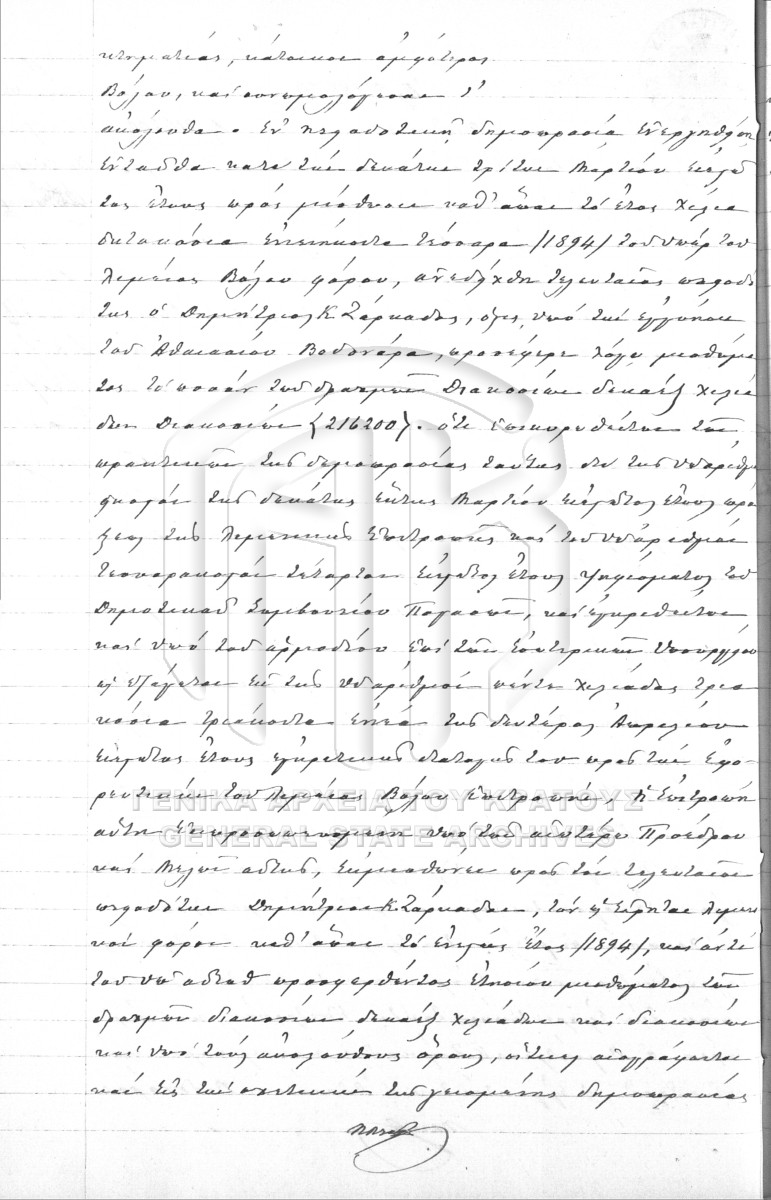 κτηματίας, κάτοικοι αμφότεροι
Βόλου, και συνωμολόγησαν τ'
ακόλουθα. Εν πλειοδοτική δημοπρασία ενεργηθείση
ενταύθα κατά την δεκάτην τρίτην Μαρτίου ενεστώ
τος έτους προς μίσθωσιν καθ' άπαν το έτος χίλια
οκτακόσια ενενήκοντα τέσσαρα /1894/ του υπέρ του
λιμένος Βόλου φόρου, ανεδείχθη τελευταίος πλειοδό
της ο Δημήτριος Κ Σάρκαδος, όστις, υπό την εγγύησιν
του Αθανασίου Βοδονάρα, προσέφερε λόγω μισθώμα
τος το ποσόν των δραχμών Διακοσίων δεκαέξ χιλιά
δων Διακοσίων (216200). Ότι επικυρωθέντων των
πρακτικών της δημοπρασίας ταύτης δια της υπ' αριθμ
της δεκάτης έκτης Μαρτίου ενεστώτος έτους πρά
ξεως της Λιμενικής Επιτροπής και του υπ' αριθμόν
τεσσαρακοστόν τέταρτον ενεστώτος έτους ψηφίσματος του
Δημοτικού Συμβουλίου Παγασών, και εγκριθέντων
και υπό του αρμοδίου επί των Εσωτερικών Υπουργείου
ως εξάγεται εκ της υπ' αριθμόν πέντε χιλιάδας τρια
κόσια τριάκοντα εννέα της δευτέρας Απριλίου
ενεστώτος έτους εγκριτικής διαταγής του προς την Εφο-
ρευτικήν του λιμένος Βόλου επιτροπήν, η Επιτροπή
αύτη εκπροσωπουμένη υπό των ανωτέρω Προέδρου
και Μελών αυτής, εκμισθώνει προς τον τελευταίον
πλειοδότην Δημήτριον Κ Σάρκαδον, τον ως είρηται λιμενι
κόν φόρον καθ' άπαν το ενεστώς έτος /1894/, και αντί
του υπ' αυτού προσφερθέντος ετησίου μισθώματος των
δραχμών διακοσίων δεκαέξ χιλιάδων και διακοσίων
και υπό τους ακολούθους όρους, οίτινες αναγράφονται
και εις την σχετικήν της γενομένης δημοπρασίας
ΓΕΝΙΚΑ ΑΡΧΕΙΑ ΤΟΥ ΚΡΑΤΟΥΣ
GENERAL STATE ARCHIVES